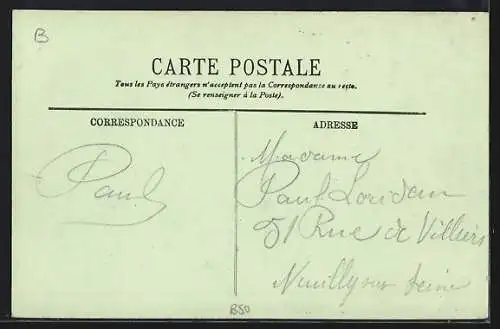 B
CARTE POSTALE
Tous les Pays étrangers n'acceptent pas la Correspondance au recto.
(Se renseigner à la Poste).
CORRESPONDANCE
ADRESSE
Paul
Madame
Paul
51 Rue de Villiers
Neuilly sur Seine
B50